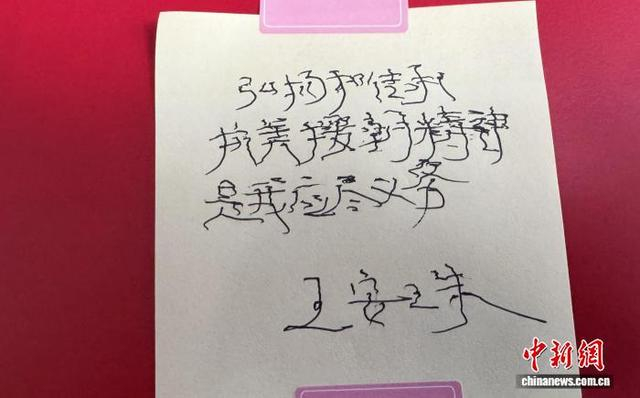 弘扬和传承
抗美援朝精神
是我应尽义务
王安球
中新網
www.
chinanews.com.cn